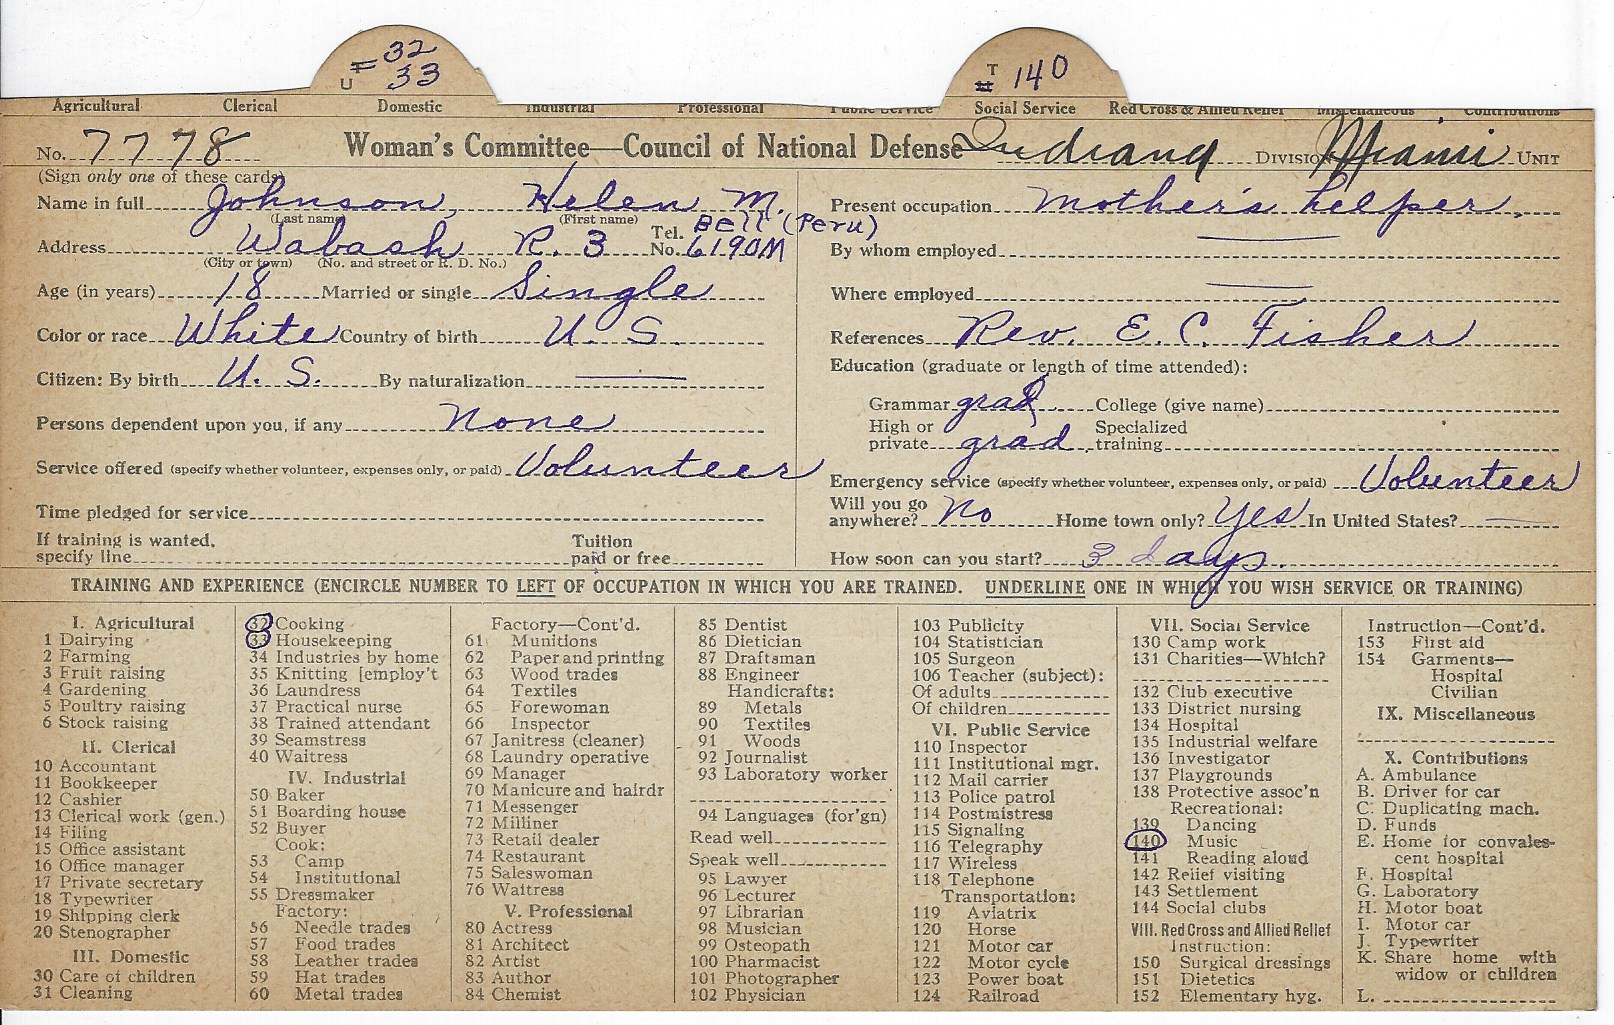 U = 32
33
T
# 140
Agricultural Clerical Domestic Industrial Professional Public Service Social Service Red Cross & Allied Relief Miscellaneous Contributions
No. 7778 Woman's Committee—Council of National Defense Indiana Division Miami Unit
(Sign only one of these cards)
Name in full Johnson, Helen M.
(Last name) (First name)
Address Wabash R. 3 Tel. No. Bell (Peru) 6190M
(City or town) (No. and street or R. D. No.)
Age (in years) 18 Married or single Single
Color or race White Country of birth U. S.
Citizen: By birth U. S. By naturalization ——
Persons dependent upon you, if any None
Service offered (specify whether volunteer, expenses only, or paid) Volunteer
Time pledged for service
If training is wanted, specify line Tuition paid or free
Present occupation Mother's helper.
By whom employed ——
Where employed ——
References Rev. E. C. Fisher
Education (graduate or length of time attended):
Grammar grad College (give name)
High or private grad Specialized training
Emergency service (specify whether volunteer, expenses only, or paid) Volunteer
Will you go anywhere? No Home town only? Yes In United States? ——
How soon can you start? 3 days.
TRAINING AND EXPERIENCE (ENCIRCLE NUMBER TO LEFT OF OCCUPATION IN WHICH YOU ARE TRAINED. UNDERLINE ONE IN WHICH YOU WISH SERVICE OR TRAINING)
I. Agricultural
1 Dairying
2 Farming
3 Fruit raising
4 Gardening
5 Poultry raising
6 Stock raising
II. Clerical
10 Accountant
11 Bookkeeper
12 Cashier
13 Clerical work (gen.)
14 Filing
15 Office assistant
16 Office manager
17 Private secretary
18 Typewriter
19 Shipping clerk
20 Stenographer
III. Domestic
30 Care of children
31 Cleaning
32 Cooking
33 Housekeeping
34 Industries by home
35 Knitting [employ't
36 Laundress
37 Practical nurse
38 Trained attendant
39 Seamstress
40 Waitress
IV. Industrial
50 Baker
51 Boarding house
52 Buyer
Cook:
53 Camp
54 Institutional
55 Dressmaker
Factory:
56 Needle trades
57 Food trades
58 Leather trades
59 Hat trades
60 Metal trades
Factory—Cont'd.
61 Munitions
62 Paper and printing
63 Wood trades
64 Textiles
65 Forewoman
66 Inspector
67 Janitress (cleaner)
68 Laundry operative
69 Manager
70 Manicure and hairdr
71 Messenger
72 Milliner
73 Retail dealer
74 Restaurant
75 Saleswoman
76 Waitress
V. Professional
80 Actress
81 Architect
82 Artist
83 Author
84 Chemist
85 Dentist
86 Dietician
87 Draftsman
88 Engineer
Handicrafts:
89 Metals
90 Textiles
91 Woods
92 Journalist
93 Laboratory worker
94 Languages (for'gn)
Read well
Speak well
95 Lawyer
96 Lecturer
97 Librarian
98 Musician
99 Osteopath
100 Pharmacist
101 Photographer
102 Physician
103 Publicity
104 Statistician
105 Surgeon
106 Teacher (subject):
Of adults
Of children
VI. Public Service
110 Inspector
111 Institutional mgr.
112 Mail carrier
113 Police patrol
114 Postmistress
115 Signaling
116 Telegraphy
117 Wireless
118 Telephone
Transportation:
119 Aviatrix
120 Horse
121 Motor car
122 Motor cycle
123 Power boat
124 Railroad
VII. Social Service
130 Camp work
131 Charities—Which?
132 Club executive
133 District nursing
134 Hospital
135 Industrial welfare
136 Investigator
137 Playgrounds
138 Protective assoc'n
Recreational:
139 Dancing
140 Music
141 Reading aloud
142 Relief visiting
143 Settlement
144 Social clubs
VIII. Red Cross and Allied Relief
Instruction:
150 Surgical dressings
151 Dietetics
152 Elementary hyg.
Instruction—Cont'd.
153 First aid
154 Garments—
Hospital
Civilian
IX. Miscellaneous
X. Contributions
A. Ambulance
B. Driver for car
C. Duplicating mach.
D. Funds
E. Home for convales-
cent hospital
F. Hospital
G. Laboratory
H. Motor boat
I. Motor car
J. Typewriter
K. Share home with
widow or children
L.